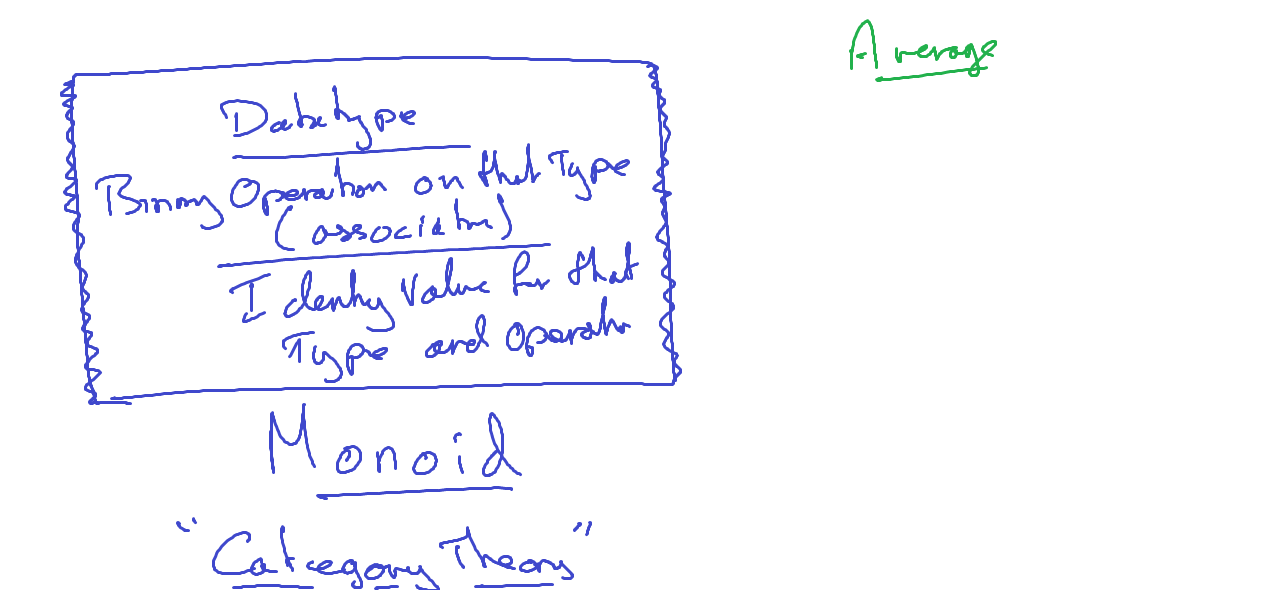 Average
Datatype
Binary Operation on that Type
(associative)
Identity Value for that
Type and Operation
Monoid
"Category Theory"